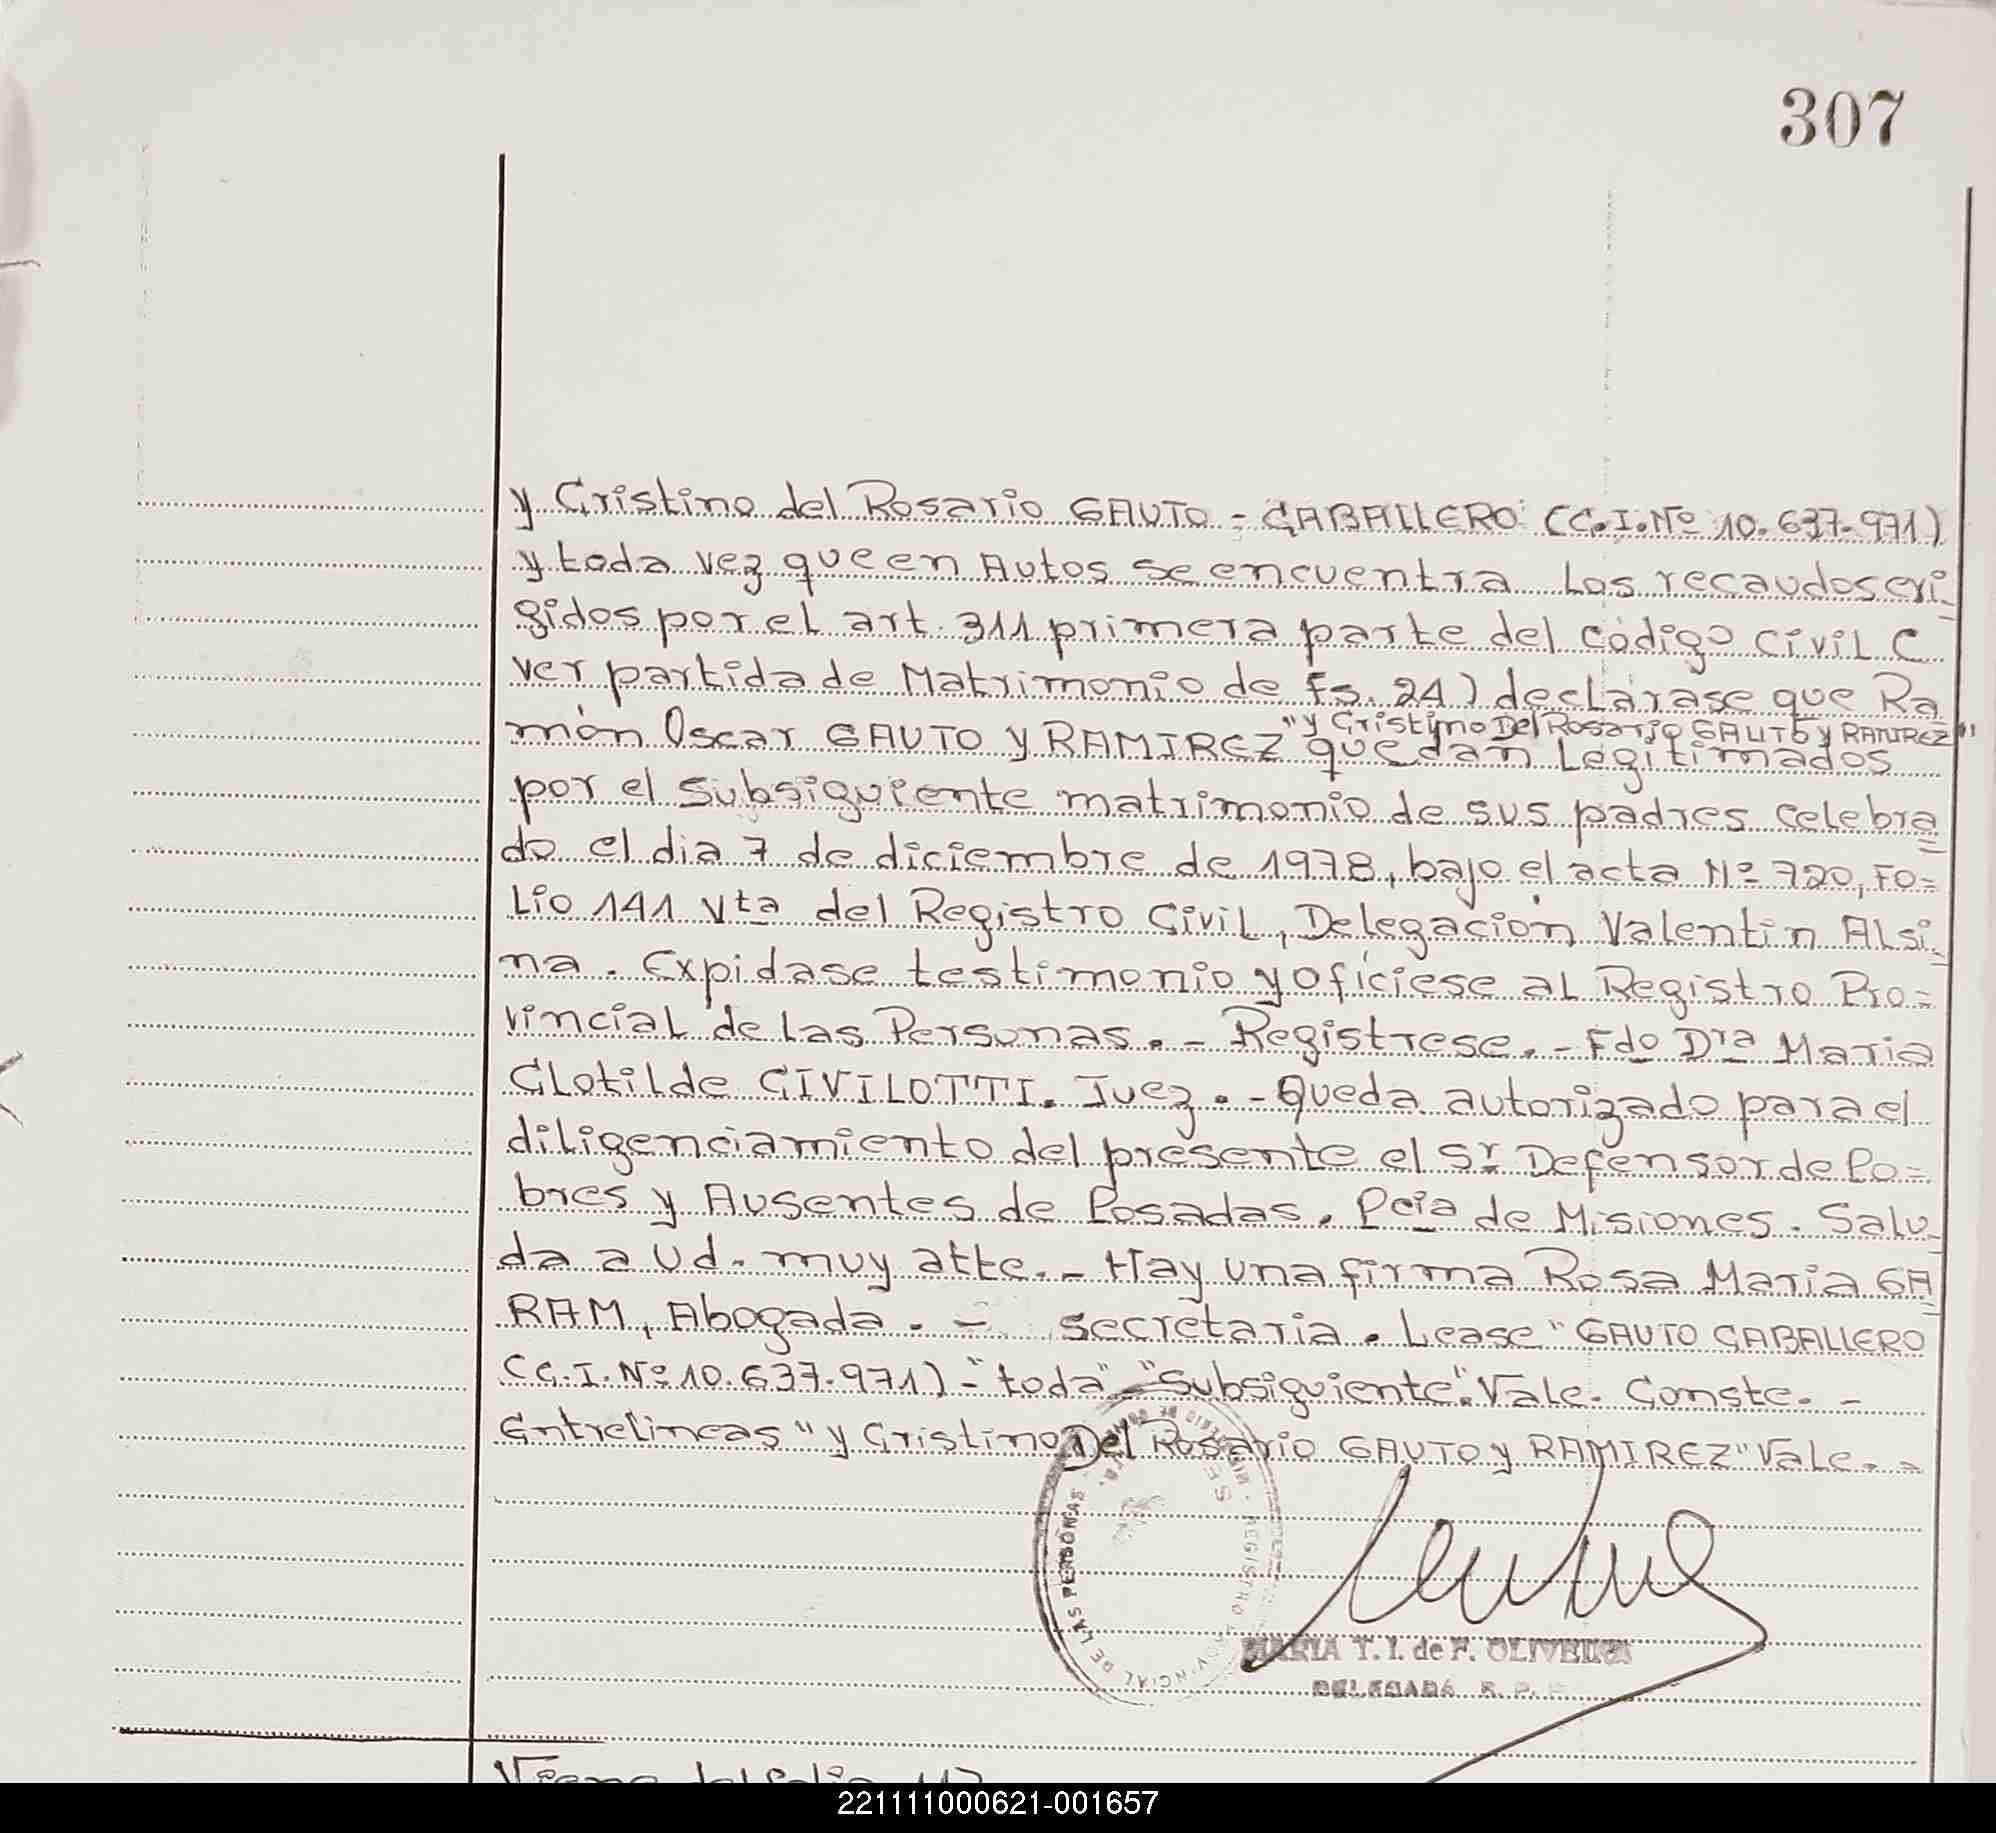 307
y Cristino del Rosario GAUTO - CABALLERO (C.I.Nº 10.637.971)
y toda vez que en Autos se encuentra Los recaudos exi-
gidos por el art. 311 primera parte del código Civil (
ver partida de Matrimonio de Fs. 24) declárase que Ra
"y Cristino Del Rosario GAUTO y RAMIREZ"
món Oscar GAUTO y RAMIREZ quedan Legitimados
por el Subsiguiente matrimonio de sus padres celebra=
do el dia 7 de diciembre de 1978, bajo el acta Nº 720, Fo=
Lio 141 Vta del Registro Civil, Delegación Valentin Alsi-
na. Expidase testimonio y ofíciese al Registro Pro=
vincial de Las Personas. - Registrese. - Fdo Dra Maria
Clotilde CIVILOTTI. Juez. - Queda autorizado para el
diligenciamiento del presente el Sr Defensor de Po=
bres y Ausentes de Posadas. Pcia de Misiones. Salu-
da a Ud. muy atte. - Hay una firma Rosa Maria GA=
RAM, Abogada. - Secretaria. Lease "GAUTO CABALLERO
(C.I.Nº 10.637.971) - "toda" - "Subsiguiente". Vale. Conste. -
Entrelineas "y Cristino Del Rosario GAUTO y RAMIREZ" Vale. -
REGISTRO PROVINCIAL DE LAS PERSONAS
MARIA T. I. de F. OLIVEIRA
DELEGADA R. P.
221111000621-001657